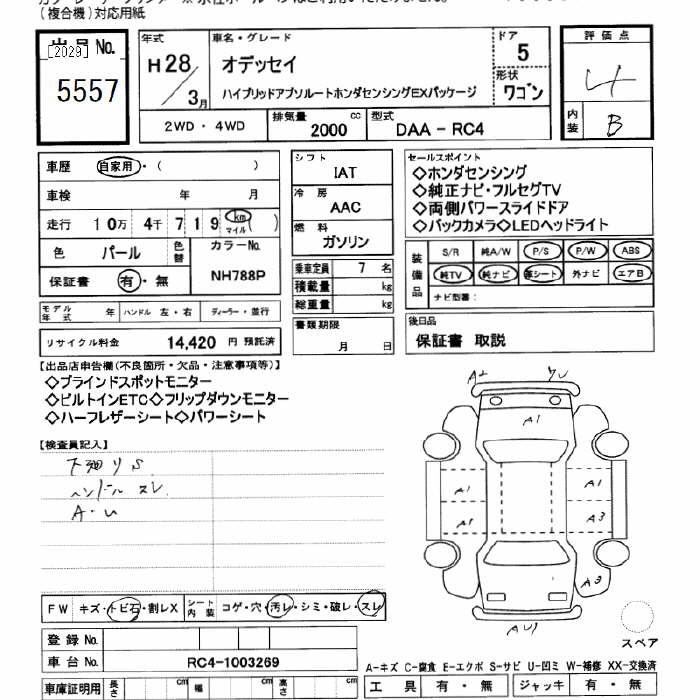 (複合機)対応用紙
出品 No.
[2029]
5557
年式
H28
3月
車名・グレード
オデッセイ
ハイブリッドアブソルートホンダセンシングEXパッケージ
ドア
5
形状
ワゴン
2WD・4WD
排気量
2000 cc
型式
DAA - RC4
評価点
4
内装
B
車歴 自家用・( )
車検 年 月
走行 10万 4千 7 1 9 km マイル ( )
色 パール 色替
カラーNo.
NH788P
保証書 有・無
モデル年式 年 ハンドル 左・右 ディーラー・並行
リサイクル料金 14,420 円 預託済
シフト
IAT
冷房
AAC
燃料
ガソリン
乗車定員 7 名
積載量 kg
総重量 kg
書類期限
月 日
セールスポイント
◇ホンダセンシング
◇純正ナビ・フルセグTV
◇両側パワースライドドア
◇バックカメラ◇LEDヘッドライト
装備品
S/R 純A/W P/S P/W ABS
純TV 純ナビ 革シート 外ナビ エアB
ナビ型番:
後日品
保証書 取説
【出品店申告欄(不良箇所・欠品・注意事項等)】
◇ブラインドスポットモニター
◇ビルトインETC◇フリップダウンモニター
◇ハーフレザーシート◇パワーシート
【検査員記入】
下廻り S
ハンドル スレ
A・U
A1
A1
A1
A1
A3
A3
FW キズ・トビ石・割レX
シート内装 コゲ・穴・汚レ・シミ・破レ・スレ
登録 No.
車台 No. RC4-1003269
車庫証明用 長さ cm 幅 cm 高さ cm
スペア
A-キズ C-腐食 E-エクボ S-サビ U-凹ミ W-補修 XX-交換済
工具 有・無 ジャッキ 有・無